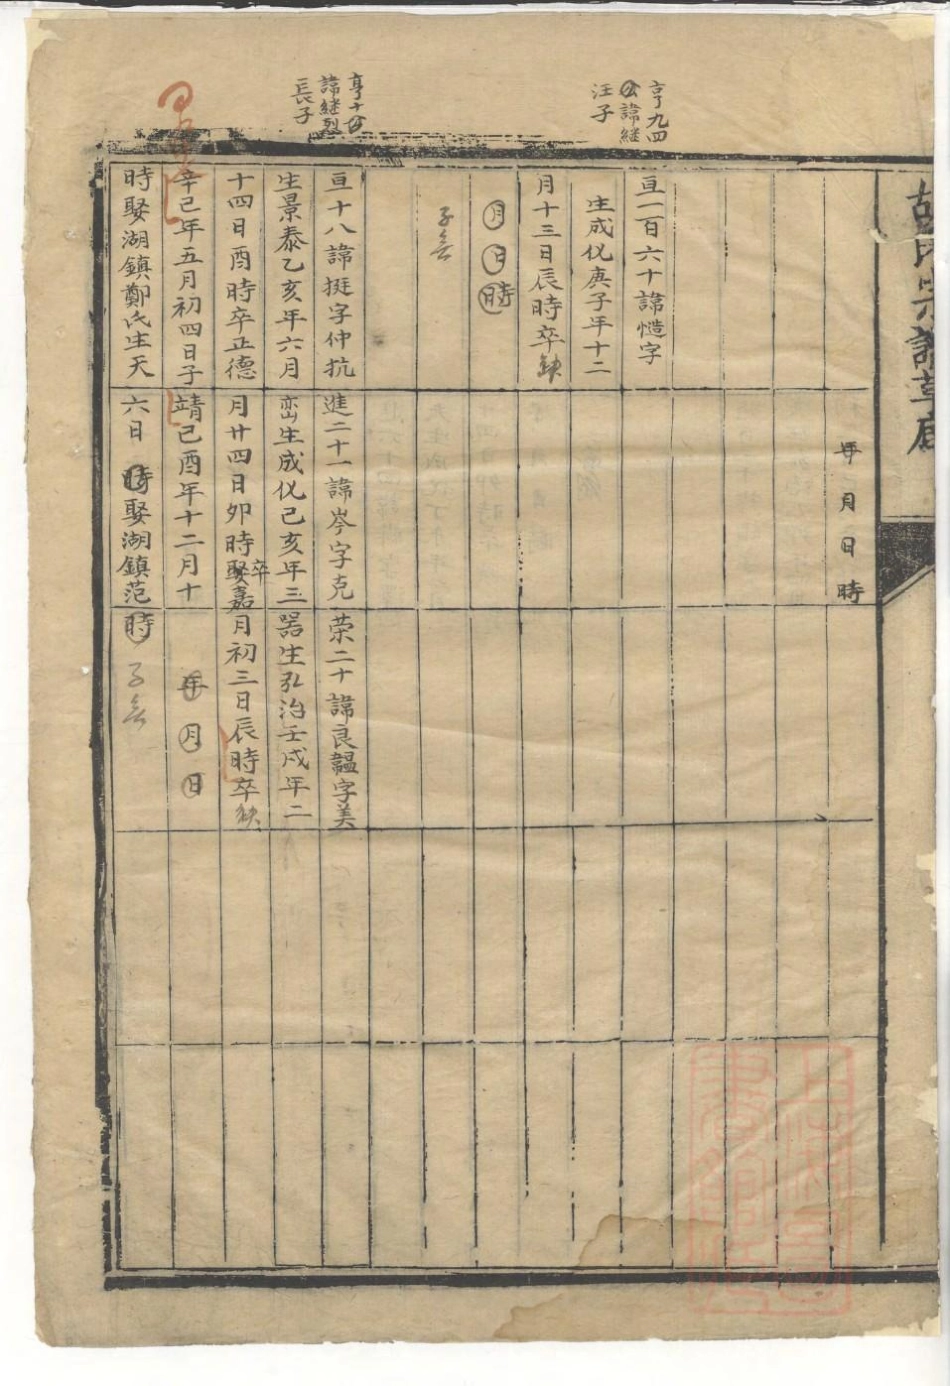 胡氏宗譜草底
年月日時
亨九四
公諱継
汪子
亘一百六十諱慥字
生成化庚子年十二
月十三日辰時卒缺
月日時
子無
亨十四
諱継烈
長子
亘十八諱挺字仲抗
生景泰乙亥年六月
十四日酉時卒正德
辛巳年五月初四日子
時娶湖鎮鄭氏生天
進二十一諱岑字克
巒生成化己亥年三
月廿四日卯時卒娶嘉
靖己酉年十二月十
六日時娶湖鎮范
荣二十諱良韞字美
器生弘治壬戌年二
月初三日辰時卒缺
年月日
時子無